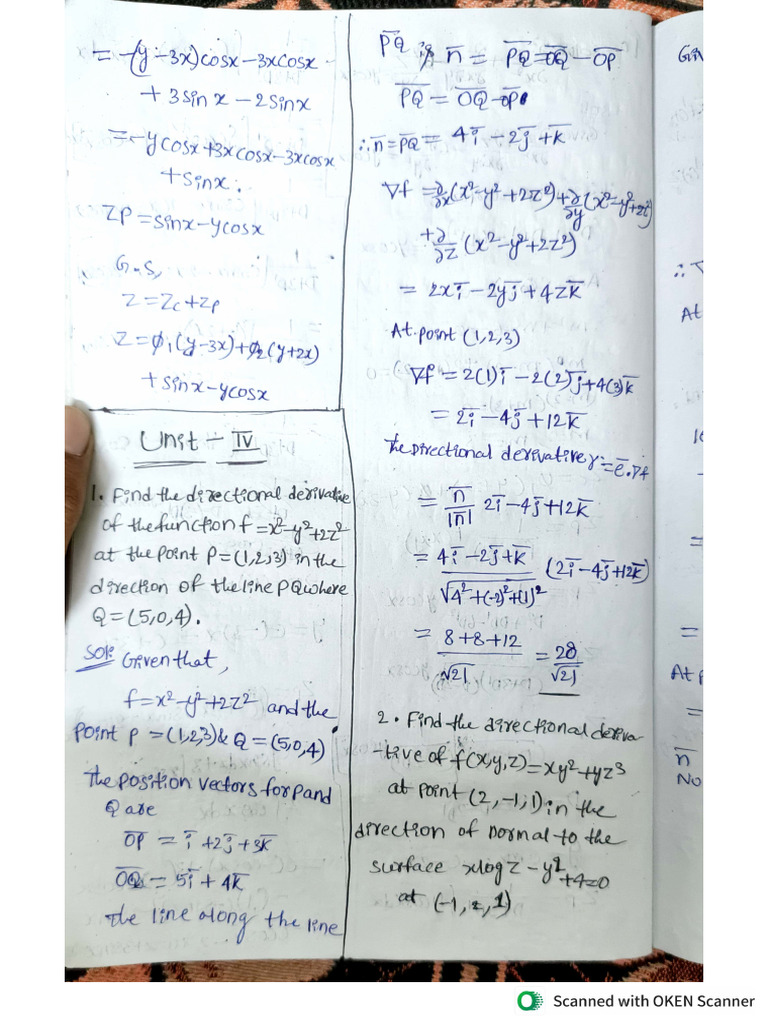 = -(y-3x)cosx - 3xcosx
+ 3sinx - 2sinx
= -ycosx+3xcosx-3xcosx
+sinx.
ZP = sinx-ycosx
G.S,
Z = Zc+Zp
Z = ϕ1(y-3x)+ϕ2(y+2x)
+sinx-ycosx
Unit - IV
1. Find the directional derivative
of the function f = x²-y²+2z²
at the point P = (1,2,3) in the
direction of the line PQ where
Q = (5,0,4).
Sol: Given that,
f = x²-y²+2z² and the
point P = (1,2,3) & Q = (5,0,4)
The position vectors for P and
Q are
O̅P̅ = i̅ +2j̅ +3k̅
O̅Q̅ = 5i̅ + 4k̅
The line along the line
P̅Q̅ is n̅ = P̅Q̅ = O̅Q̅ - O̅P̅
P̅Q̅ = O̅Q̅ - O̅P̅
∴ n̅ = P̅Q̅ = 4i̅ - 2j̅ + k̅
∇f = ∂/∂x(x²-y²+2z²)+∂/∂y(x²-y²+2z²)
+∂/∂z (x²-y²+2z²)
= 2xi̅ - 2yj̅ + 4zk̅
At point (1,2,3)
∇f = 2(1)i̅ - 2(2)j̅ + 4(3)k̅
= 2i̅ - 4j̅ + 12k̅
The Directional derivative = e̅.∇f
= n̅/|n̅| 2i̅ - 4j̅ + 12k̅
= 4i̅ - 2j̅ + k̅/√4²+(-2)²+(1)² (2i̅ - 4j̅ + 12k̅)
= 8+8+12/√21 = 28/√21
2. Find the directional deriva
-tive of f(x,y,z) = xy²+yz³
at point (2,-1,1) in the
direction of normal to the
surface xlogz - y²+4=0
at (-1,2,1)
∴ ∇
At
=
=
At P
=
n̅
No
Scanned with OKEN Scanner